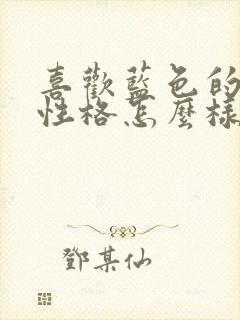 喜歡藍色的
性格怎麼樣
鄧某仙